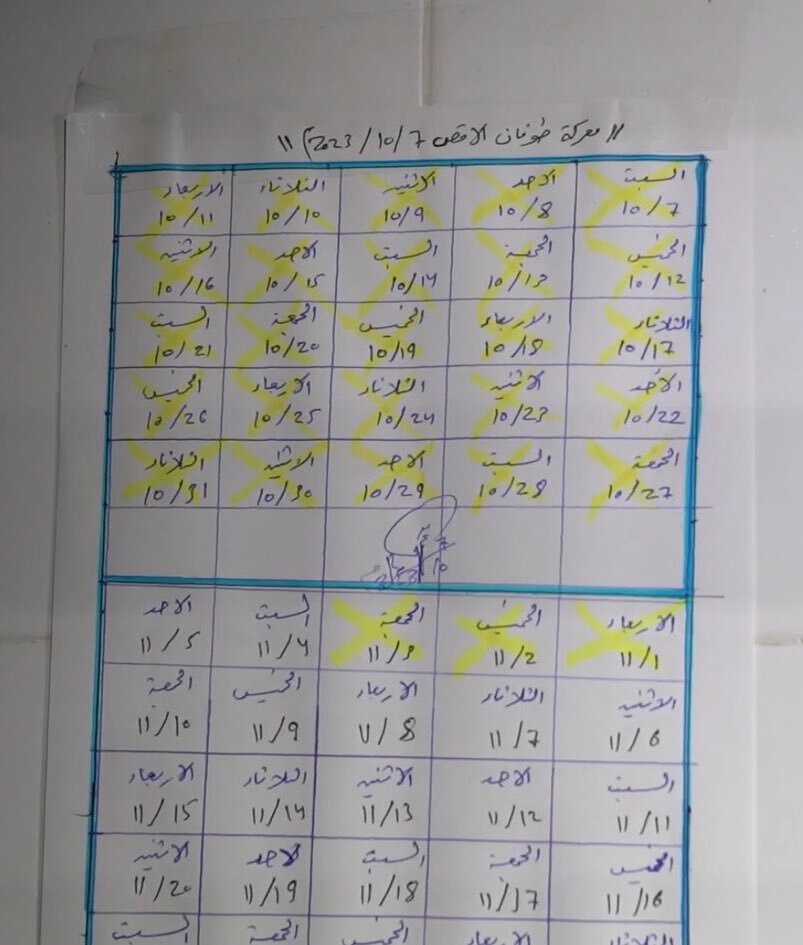 "معركة طوفان الاقصى 7/10/2023م"
السبت الاحد الاثنين الثلاثاء الاربعاء
10/7 10/8 10/9 10/10 10/11
الخميس الجمعة السبت الاحد الاثنين
10/12 10/13 10/14 10/15 10/16
الثلاثاء الاربعاء الخميس الجمعة السبت
10/17 10/18 10/19 10/20 10/21
الأحد الاثنين الثلاثاء الاربعاء الخميس
10/22 10/23 10/24 10/25 10/26
الجمعة السبت الاحد الاثنين الثلاثاء
10/27 10/28 10/29 10/30 10/31
الاربعاء الخميس الجمعة السبت الاحد
11/1 11/2 11/3 11/4 11/5
الاثنين الثلاثاء الاربعاء الخميس الجمعة
11/6 11/7 11/8 11/9 11/10
السبت الاحد الاثنين الثلاثاء الاربعاء
11/11 11/12 11/13 11/14 11/15
الخميس الجمعة السبت الاحد الاثنين
11/16 11/17 11/18 11/19 11/20
الثلاثاء الاربعاء الخميس الجمعة السبت